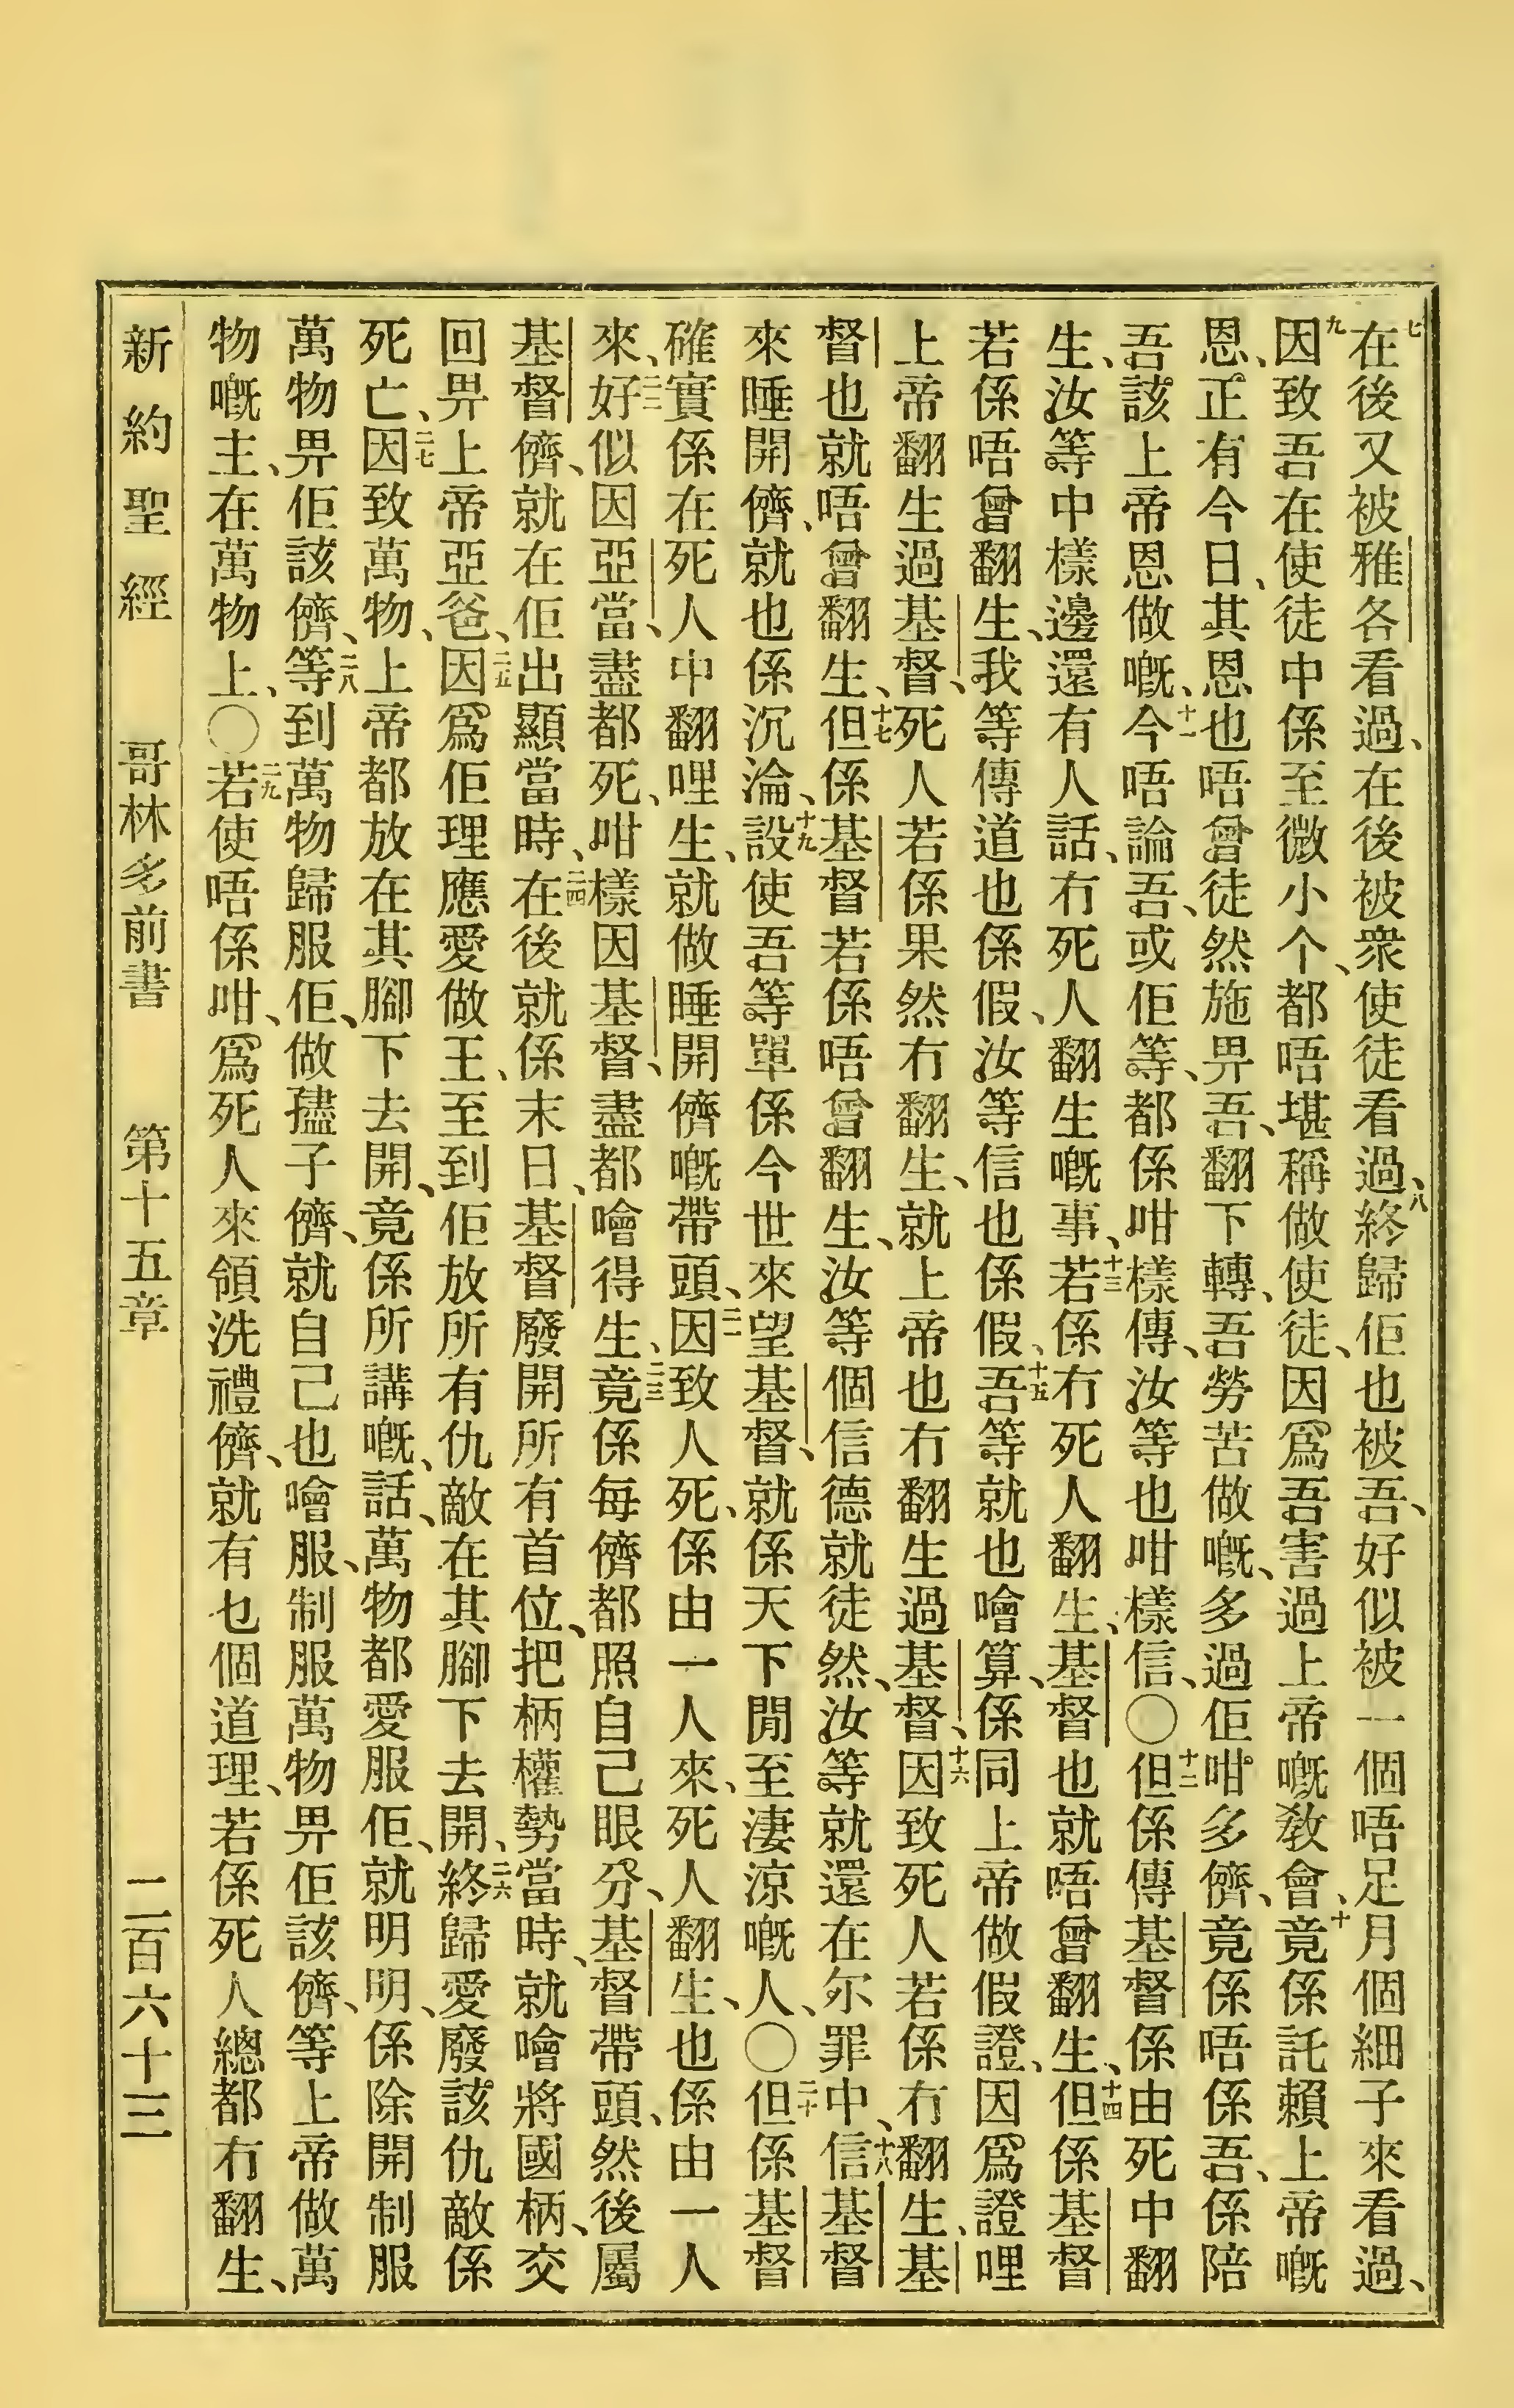 七在後又被雅各看過、在後被衆使徒看過、八終歸佢也被吾、好似被一個唔足月個細子來看過、
九因致吾在使徒中係至微小个、都唔堪稱做使徒、因爲吾害過上帝嘅教會、十竟係託賴上帝嘅
恩、正有今日、其恩也唔曾徒然施畀吾、翻下轉、吾勞苦做嘅、多過佢咁多儕、竟係唔係吾、係陪
吾該上帝恩做嘅、十一今唔論吾、或佢等、都係咁樣傳、汝等也咁樣信、〇十二但係傳基督係由死中翻
生、汝等中樣邊還有人話、冇死人翻生嘅事、十三若係冇死人翻生、基督也就唔曾翻生、十四但係基督
若係唔曾翻生、我等傳道也係假、汝等信也係假、十五吾等就也噲算、係同上帝做假證、因爲證哩
上帝翻生過基督、死人若係果然冇翻生、就上帝也冇翻生過基督、十六因致死人若係冇翻生、基
督也就唔曾翻生、十七但係基督若係唔曾翻生、汝等個信德就徒然、汝等就還在尔罪中、十八信基督
來睡開儕、就也係沉淪、十九設使吾等單係今世來望基督、就係天下閒至淒涼嘅人、〇二十但係基督
確實係在死人中翻哩生、就做睡開儕嘅帶頭、二一因致人死、係由一人來、死人翻生、也係由一人
來、二二好似因亞當、盡都死、咁樣因基督、盡都噲得生、二三竟係每儕都照自己眼分、基督帶頭、然後屬
基督儕、就在佢出顯當時、二四在後就係末日、基督廢開所有首位、把柄權勢當時、就噲將國柄、交
回畀上帝亞爸、二五因爲佢理應愛做王、至到佢放所有仇敵在其腳下去開、二六終歸愛廢該仇敵係
死亡、二七因致萬物、上帝都放在其腳下去開、竟係所講嘅話、萬物都愛服佢、就明明、係除開制服
萬物畀佢該儕、二八等到萬物歸服佢、做孻子儕、就自己也噲服、制服萬物畀佢該儕、等上帝做萬
物嘅主、在萬物上、〇二九若使唔係咁、爲死人來領洗禮儕、就有乜個道理、若係死人總都冇翻生、
新約聖經　哥林多前書　第十五章　二百六十三